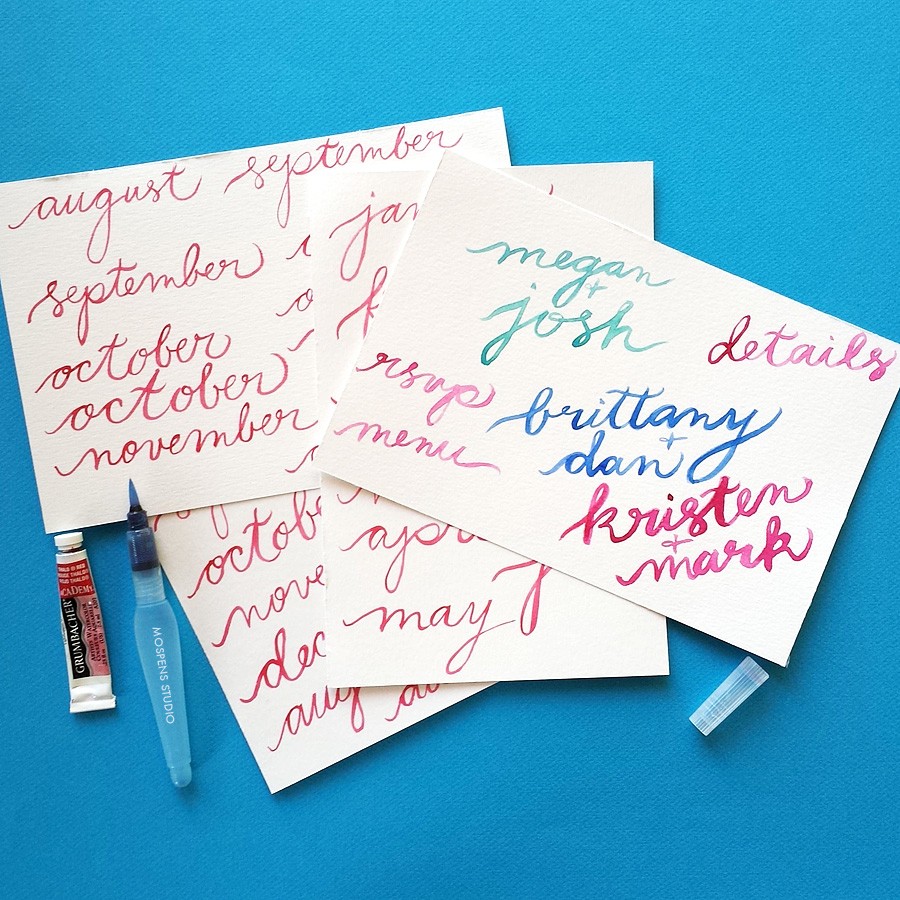 august september
september
october
october
november
jan
megan
+
josh
details
rsvp
menu
brittany
+
dan
kristen
+
mark
apr
may
octobe
nove
dec
aug
THALO RED
ACADEMY
GRUMBACHER
MOSPENS STUDIO